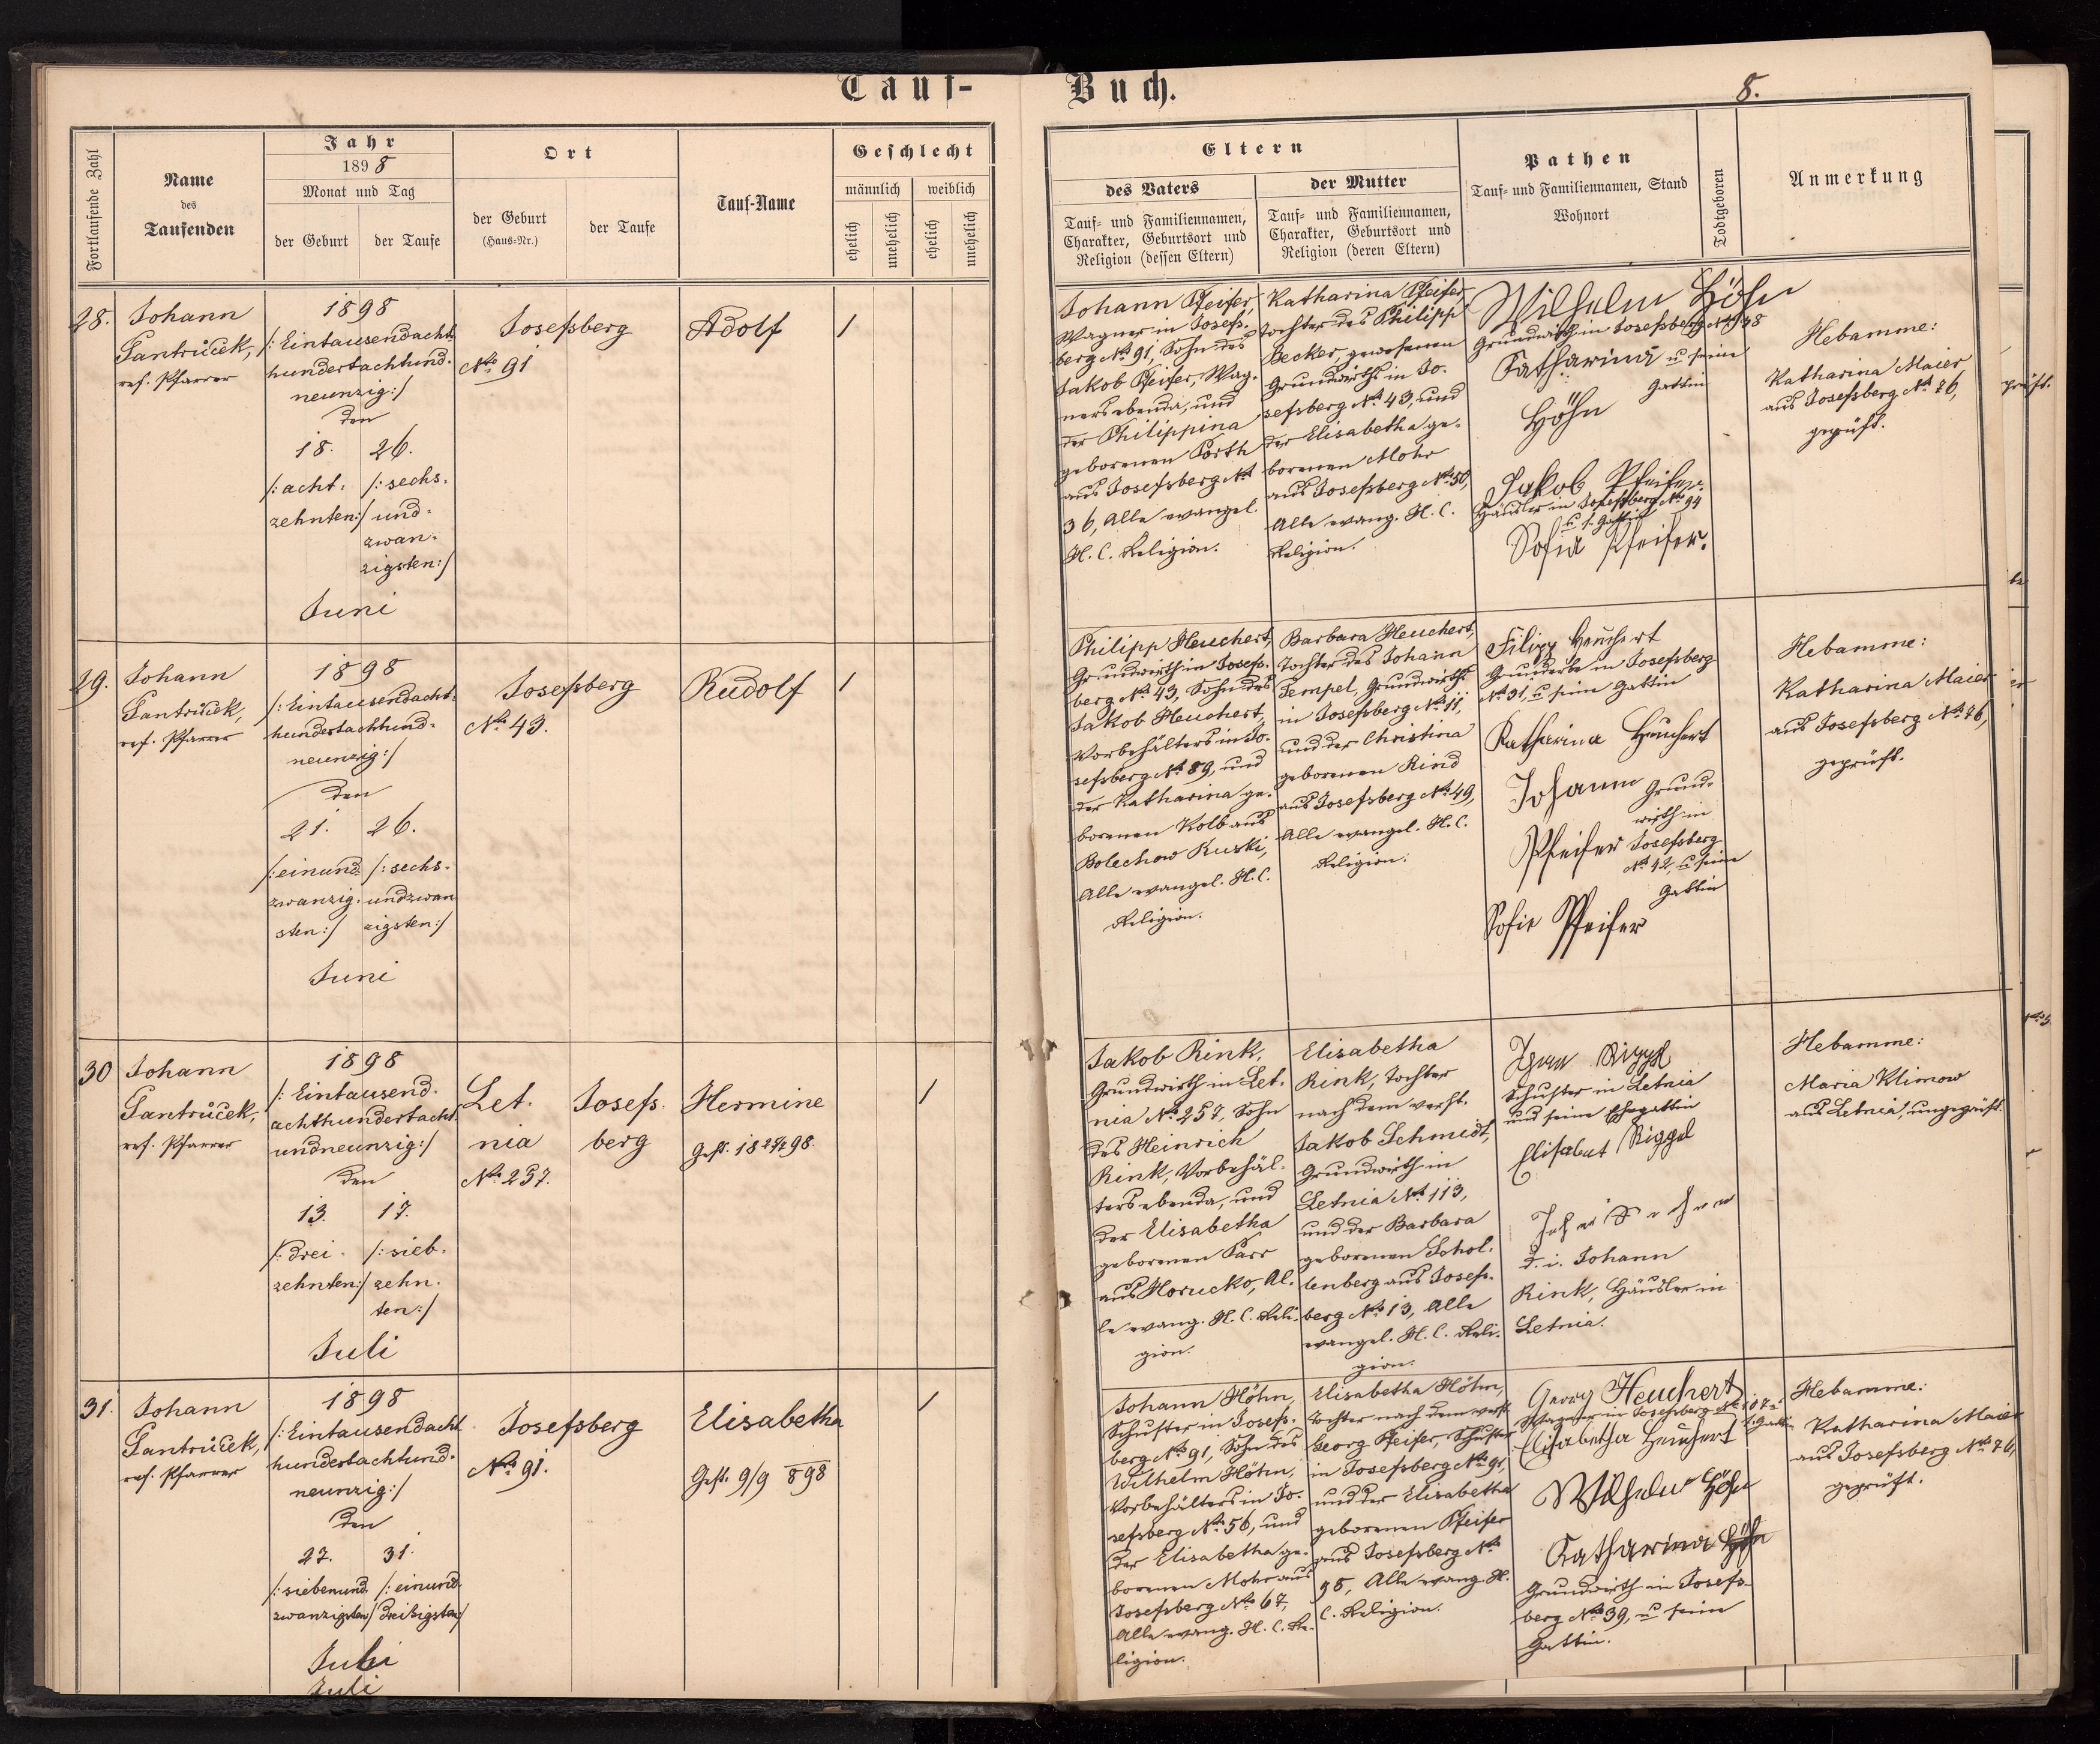 Tauf-
Fortlaufende Zahl
Name
des
Taufenden
Jahr
1898
Monat und Tag
der Geburt
der Taufe
Ort
der Geburt
(Haus-Nr.)
der Taufe
Tauf-Name
Geschlecht
männlich
weiblich
ehelich
unehelich
ehelich
unehelich
28.
Johann
ref. Pfarrer
1898
/: Eintausendacht-
hundertachtund-
neunzig :/
den
18.
26.
/: acht-
zehnten :/
/: sechs-
und-
zwan-
zigsten :/
Juni
Josefsberg
No 91
Adolf
1
29.
Johann
ref. Pfarrer
1898
/: Eintausendacht-
hundertachtund-
neunzig :/
den
21.
26.
/: einund
zwanzig-
sten :/
/: sechs-
undzwan
zigsten :/
Juni
Josefsberg
No 43.
Rudolf
1
30
Johann
ref. Pfarrer
1898
/: Eintausend-
achthundertacht-
undneunzig :/
den
13.
17.
/: drei-
zehnten :/
/: sieb-
zehn-
ten :/
Juli
Let-
nia
No 257.
Josefs-
berg
Hermine
1
31.
Johann
ref. Pfarrer
1898
/: Eintausendacht
hundertachtund-
neunzig :/
den
27.
31.
/: siebenund-
zwanzigsten :/
/: einund-
dreißigsten :/
Juli
Juli
Josefsberg
No 91.
Elisabetha
Gest. 9/9 898
1
Buch.
8.
Eltern
des Vaters
Tauf- und Familiennamen,
Charakter, Geburtsort und
Religion (dessen Eltern)
der Mutter
Tauf- und Familiennamen,
Charakter, Geburtsort und
Religion (deren Eltern)
Pathen
Tauf- und Familiennamen, Stand
Wohnort
Todtgeboren
Anmerkung
Johann Pfeifer,
Wagner in Josefs-
berg No 91, Sohn des
Jakob Pfeifer, Wag-
ners ebenda, und
der Philippina
geborenen Porth
aus Josefsberg No
36, Alle evangel.
H. C. Religion.
Katharina Pfeifer,
Tochter des Philipp
Becker, gewesenen
Grundwirths in Jo-
sefsberg No 43, und
der Elisabetha ge-
borenen Mohr
aus Josefsberg No 50,
Alle evang. H. C.
Religion.
Wilhelm Höhn
Grundwirth in Josefsberg No 48
Katharina u seine
Gattin
Höhn
Jakob Pfeifer
Häusler in Josefsberg No 94
u. s. Gattin
Sofia Pfeifer.
Hebamme:
Katharina Maier
aus Josefsberg No 76,
geprüft.
Philipp Heuchert,
Grundwirth in Josefs-
berg No 43, Sohn des
Jakob Heuchert,
Vorbehälters in Jo-
sefsberg No 89, und
der Katharina ge-
borenen Kolb aus
Bolechow Ruski,
Alle evangel. H. C.
Religion.
Barbara Heuchert,
Tochter des Johann
Tempel, Grundwirths
in Josefsberg No 11,
und der Christina
geborenen Rind
aus Josefsberg No 49,
Alle evangel. H. C.
Religion.
Filipp Heuchert
in Josefsberg
No 31, u. sein Gattin
Katharina Heuchert
Johann Grund-
wirth in
Pfeifer Josefsberg
No 42, u seine
Gattin
Sofie Pfeifer
Hebamme:
Katharina Maier
aus Josefsberg No 76,
geprüft.
Jakob Rink,
Grundwirth in Let-
nia No 257, Sohn
des Heinrich
Rink, Vorbehäl-
ters ebenda, und
der Elisabetha
geborenen Parr
aus Horucko, Al-
le evang. H. C. Reli-
gion.
Elisabetha
Rink, Tochter
nach dem verst.
Jakob Schmidt,
Grundwirth in
Letnia No 113,
und der Barbara
geborenen Schol-
lenberg aus Josefs-
berg No 13, Alle
evangel. H. C. Reli-
gion.
Riggel
Schuster in Letnia
und seine Ehegattin
Elisabet Riggel
d. i. Johann
Rink, Häusler in
Letnia.
Hebamme:
Maria Klimow
aus Letnia, ungeprüft.
Johann Höhn,
Schuster in Josefs-
berg No 91, Sohn des
Wilhelm Höhn,
Vorbehälters in Jo-
sefsberg No 56, und
der Elisabetha ge-
borenen Mohr aus
Josefsberg No 67,
Alle evang. H. C. Re-
ligion.
Elisabetha Höhn,
Tochter nach dem verst.
Georg Pfeifer, Schuster
in Josefsberg No 91,
und der Elisabetha
geborenen Pfeifer
aus Josefsberg No
95, Alle evang. H.
C. Religion.
Georg Heuchert
Wagner in Josefsberg No 107 u
s. Gattin
Elisabetha Heuchert
Wilhelm Höhn
Katharina Höhn
Grundwirth in Josefs-
berg No 39, u seine
Gattin.
Hebamme:
Katharina Maier
aus Josefsberg No 76,
geprüft.